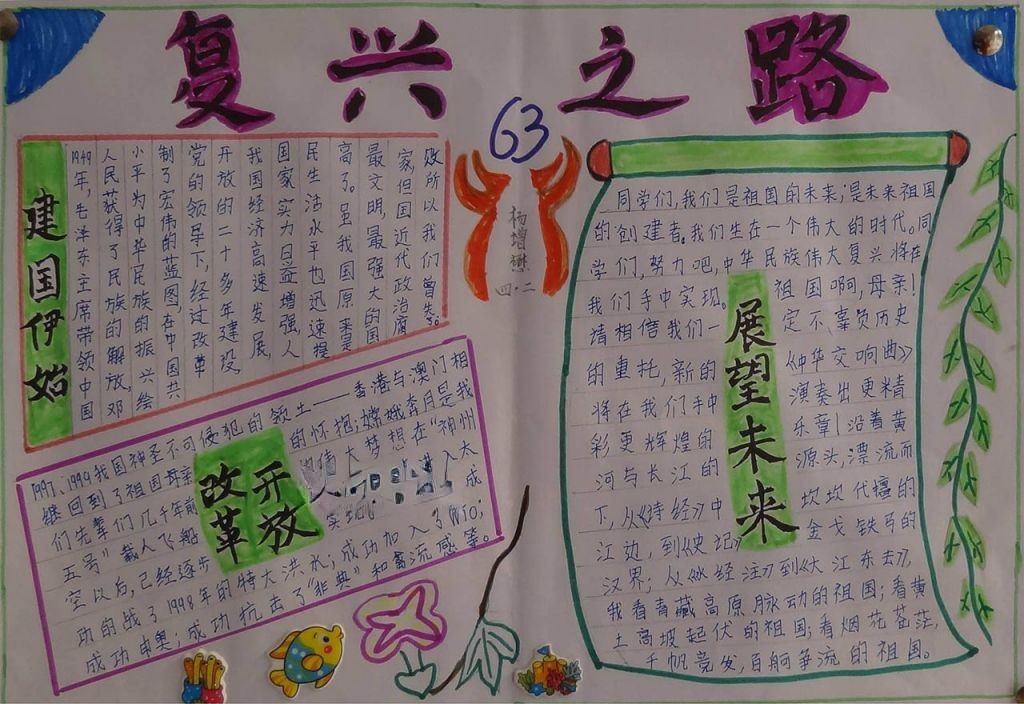 复兴之路
63
杨增懋
四·二
建国伊始
1949年,毛泽东主席带领中国
人民获得了民族的解放,邓
小平为中华民族的振兴绘
制了宏伟的蓝图,在中国共
党的领导下,经过改革
开放的二十多年建设,
我国经济高速发展,
国家实力日益增强,人
民生活水平也迅速提
高了。虽我国原来是
最文明,最强大的国
家,但国近代政治腐
败所以我们曾失。
改革
开放
1997、1999我国神圣不可侵犯的领土——香港与澳门相
继回到了祖国母亲的怀抱;嫦娥奔月是我
们先辈们几千年前伟大梦想在"神州
五号"载人飞船实现进入太
空以后,已经逐步成
功的战了1998年的特大洪水;成功加入了Wio;
成功申奥;成功抗击了"非典"和禽流感等。
展望未来
同学们,我们是祖国的未来;是未来祖国
的创建者。我们生在一个伟大的时代。同
学们,努力吧,中华民族伟大复兴将在
我们手中实现。祖国啊,母亲!
请相信我们一定不辜负历史
的重托,新的《中华交响曲》
将在我们手中演奏出更精
彩更辉煌的乐章!沿着黄
河与长江的源头,漂流而
下,从《诗经》中坎坎代檀的
江边,到《史记》金戈铁弓的
汉界;从《水经注》到《大江东去》,
我看青藏高原脉动的祖国;看黄
土高坡起伏的祖国;看烟花苍茫,
千帆竞发,百舸争流的祖国。